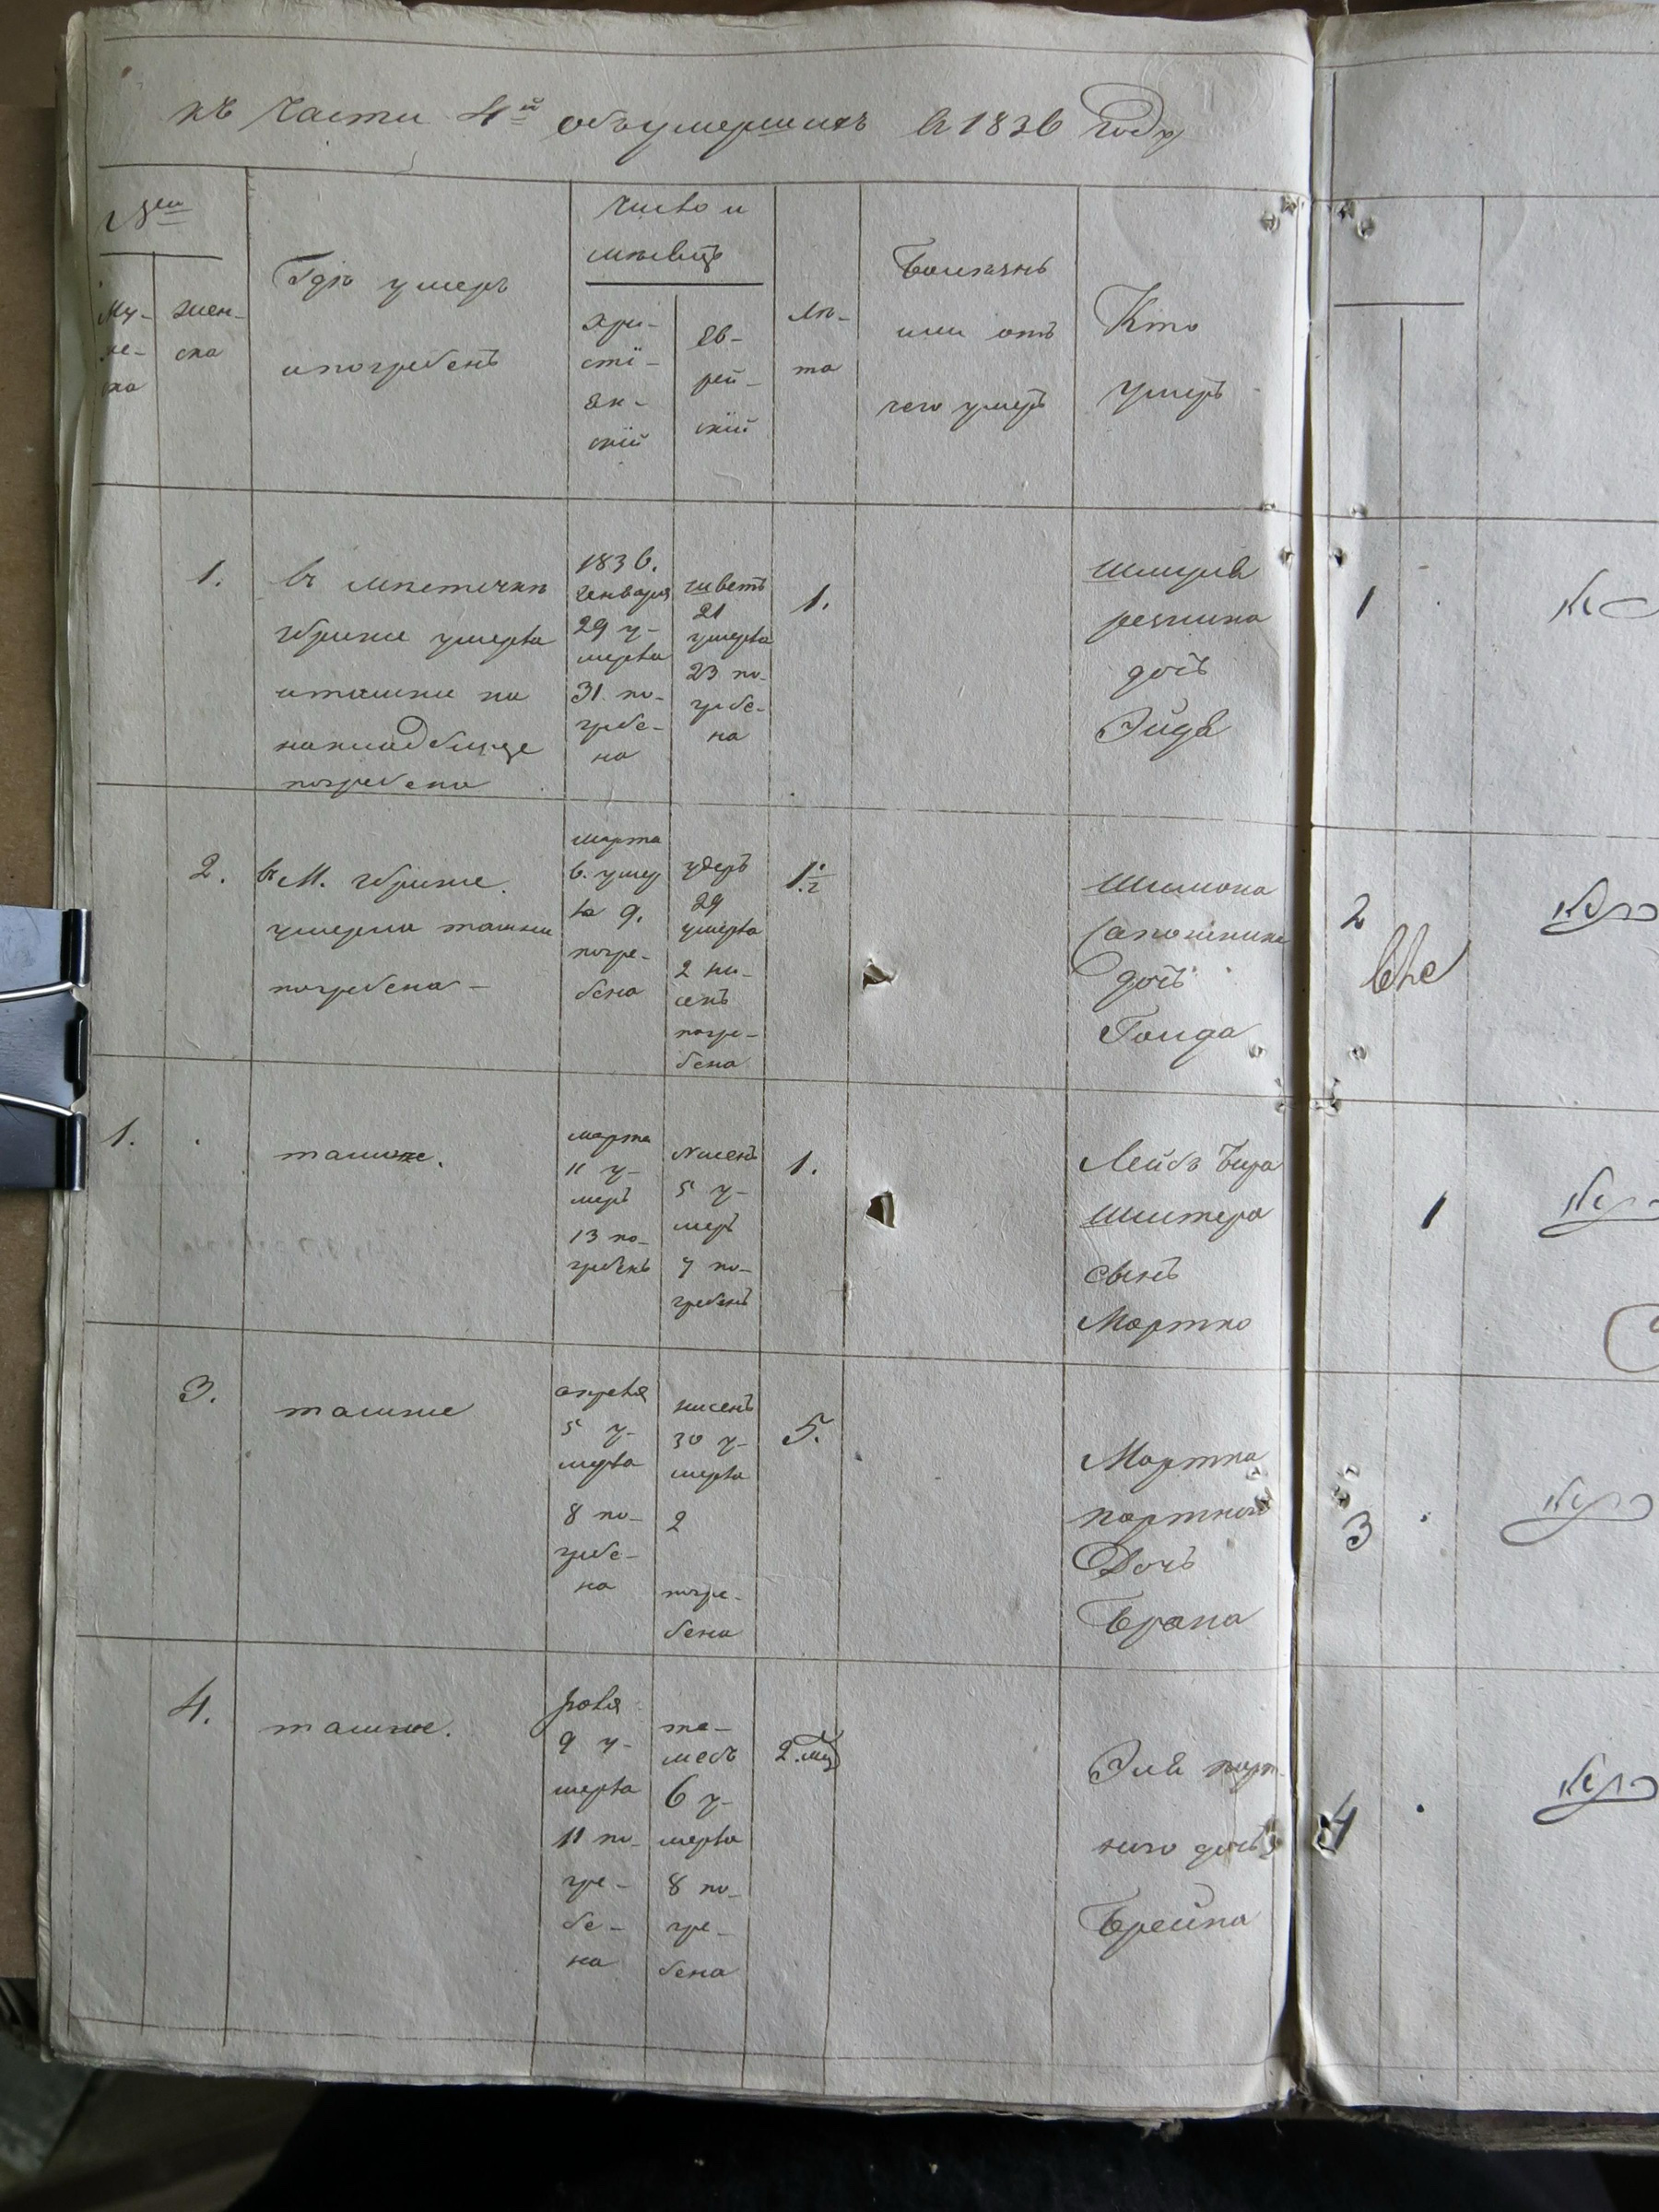 къ Части 4й объумершихъ в 1836 Году
Муже-
ска
женска
Гдѣ умеръ
и погребенъ
Число и
мѣсяцъ
Хри-
стї-
ян-
скїй
ев-
рей-
скїй
лѣ-
та
Болѣзнь
или отъ
чего умеръ
Кто
умеръ
1.
въ мѣстечкѣ
умерла
и тамже на
погребена
1836.
генваря
29 у-
мерла
31. по-
гребе-
на
шветъ
21
умерла
23 по-
гребе-
на
1.
Шмуля
резника
дочь
Эйдя
1
2.
въ М.
умерла тамже
погребена -
марта
6. умер
ла 9.
погре-
бена
удеръ
29
умерла
2 ни-
сенъ
погре-
бена
1. 1/2
Шимона
сапожника
дочь
Голда
2
1.
тамже.
марта
11 у-
меръ
13 по-
гребенъ
Нисенъ
5 у-
меръ
7 по-
гребенъ
1.
Лейбъ Бера
Шмитера
сынъ
Мортко
1
3.
тамже
апреля
5 у-
мерла
8 по-
гребе-
на
нисенъ
30 у-
мерла
2
погре-
бена
5.
Мортка
портного
Дочь
Брана
3
4.
тамже.
9 у-
мерла
11 по-
гре-
бе-
на
6 у-
мерла
8 по-
гре-
бена
2. мц
Эля порт-
ного дочь
Брейна
4